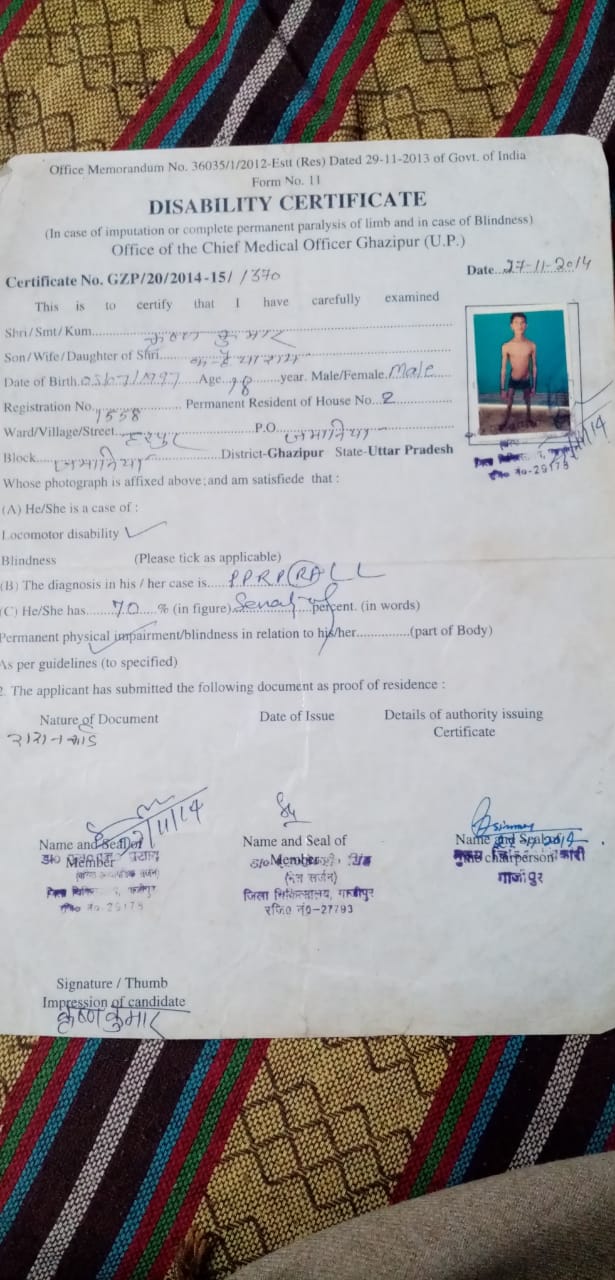 Office Memorandum No. 36035/1/2012-Estt (Res) Dated 29-11-2013 of Govt. of India
Form No. 11
DISABILITY CERTIFICATE
(In case of imputation or complete permanent paralysis of limb and in case of Blindness)
Office of the Chief Medical Officer Ghazipur (U.P.)
Certificate No. GZP/20/2014-15/ /370 Date...27-11-2014
This is to certify that I have carefully examined
Shri/Smt/Kum....कृष्ण कुमार
Son/Wife/Daughter of Shri....
Date of Birth. Age..18....year. Male/Female. Male
Registration No. 1558 Permanent Resident of House No..2
Ward/Village/Street. P.O. जमानिया
Block. जमानिया District-Ghazipur State-Uttar Pradesh
Whose photograph is affixed above; and am satisfiede that :
(A) He/She is a case of :
Locomotor disability ✓
Blindness (Please tick as applicable)
(B) The diagnosis in his / her case is..... PPRP (RA) LL
(C) He/She has........70....% (in figure) percent. (in words)
Permanent physical impairment/blindness in relation to his/her..............(part of Body)
As per guidelines (to specified)
2. The applicant has submitted the following document as proof of residence :
Nature of Document Date of Issue Details of authority issuing
Certificate
राशन कार्ड
27/11/14
Name and Seal of Name and Seal of Name and Seal of
Member Member the chairperson
(नेत्र सर्जन)
जिला चिकित्सालय, गाजीपुर गाजीपुर
रजि० नं०-27793
रजि० नं०-29179
Signature / Thumb
Impression of candidate
कृष्ण कुमार